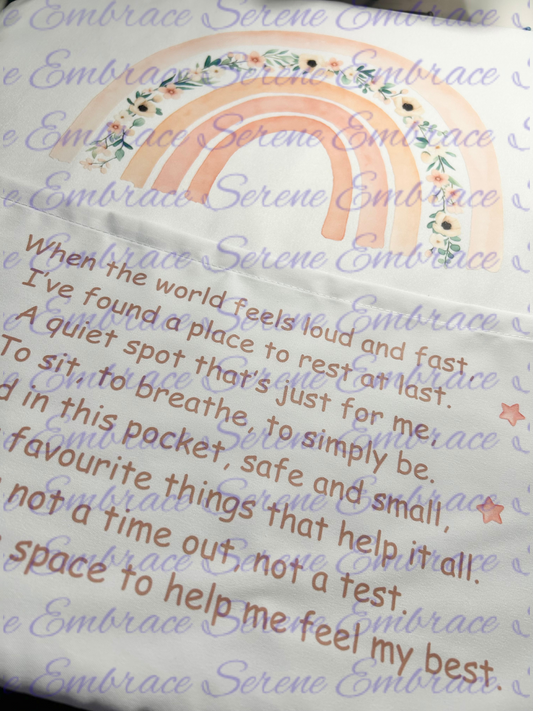 When the world feels loud and fast,
I've found a place to rest at last.
A quiet spot that's just for me,
To sit, to breathe, to simply be.
in this pocket, safe and small,
favourite things that help it all.
not a time out, not a test.
space to help me feel my best.
Serene Embrace